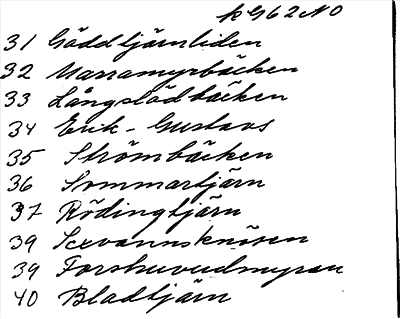 AG62NO
31 Gäddtjärnliden
32 Marramyrbäcken
33 Långslådbäcken
34 Erik-Gustavs
35 Strömbäcken
36 Sommartjärn
37 Rödingtjärn
39
39 Forshuvudmyran
40 Bladtjärn